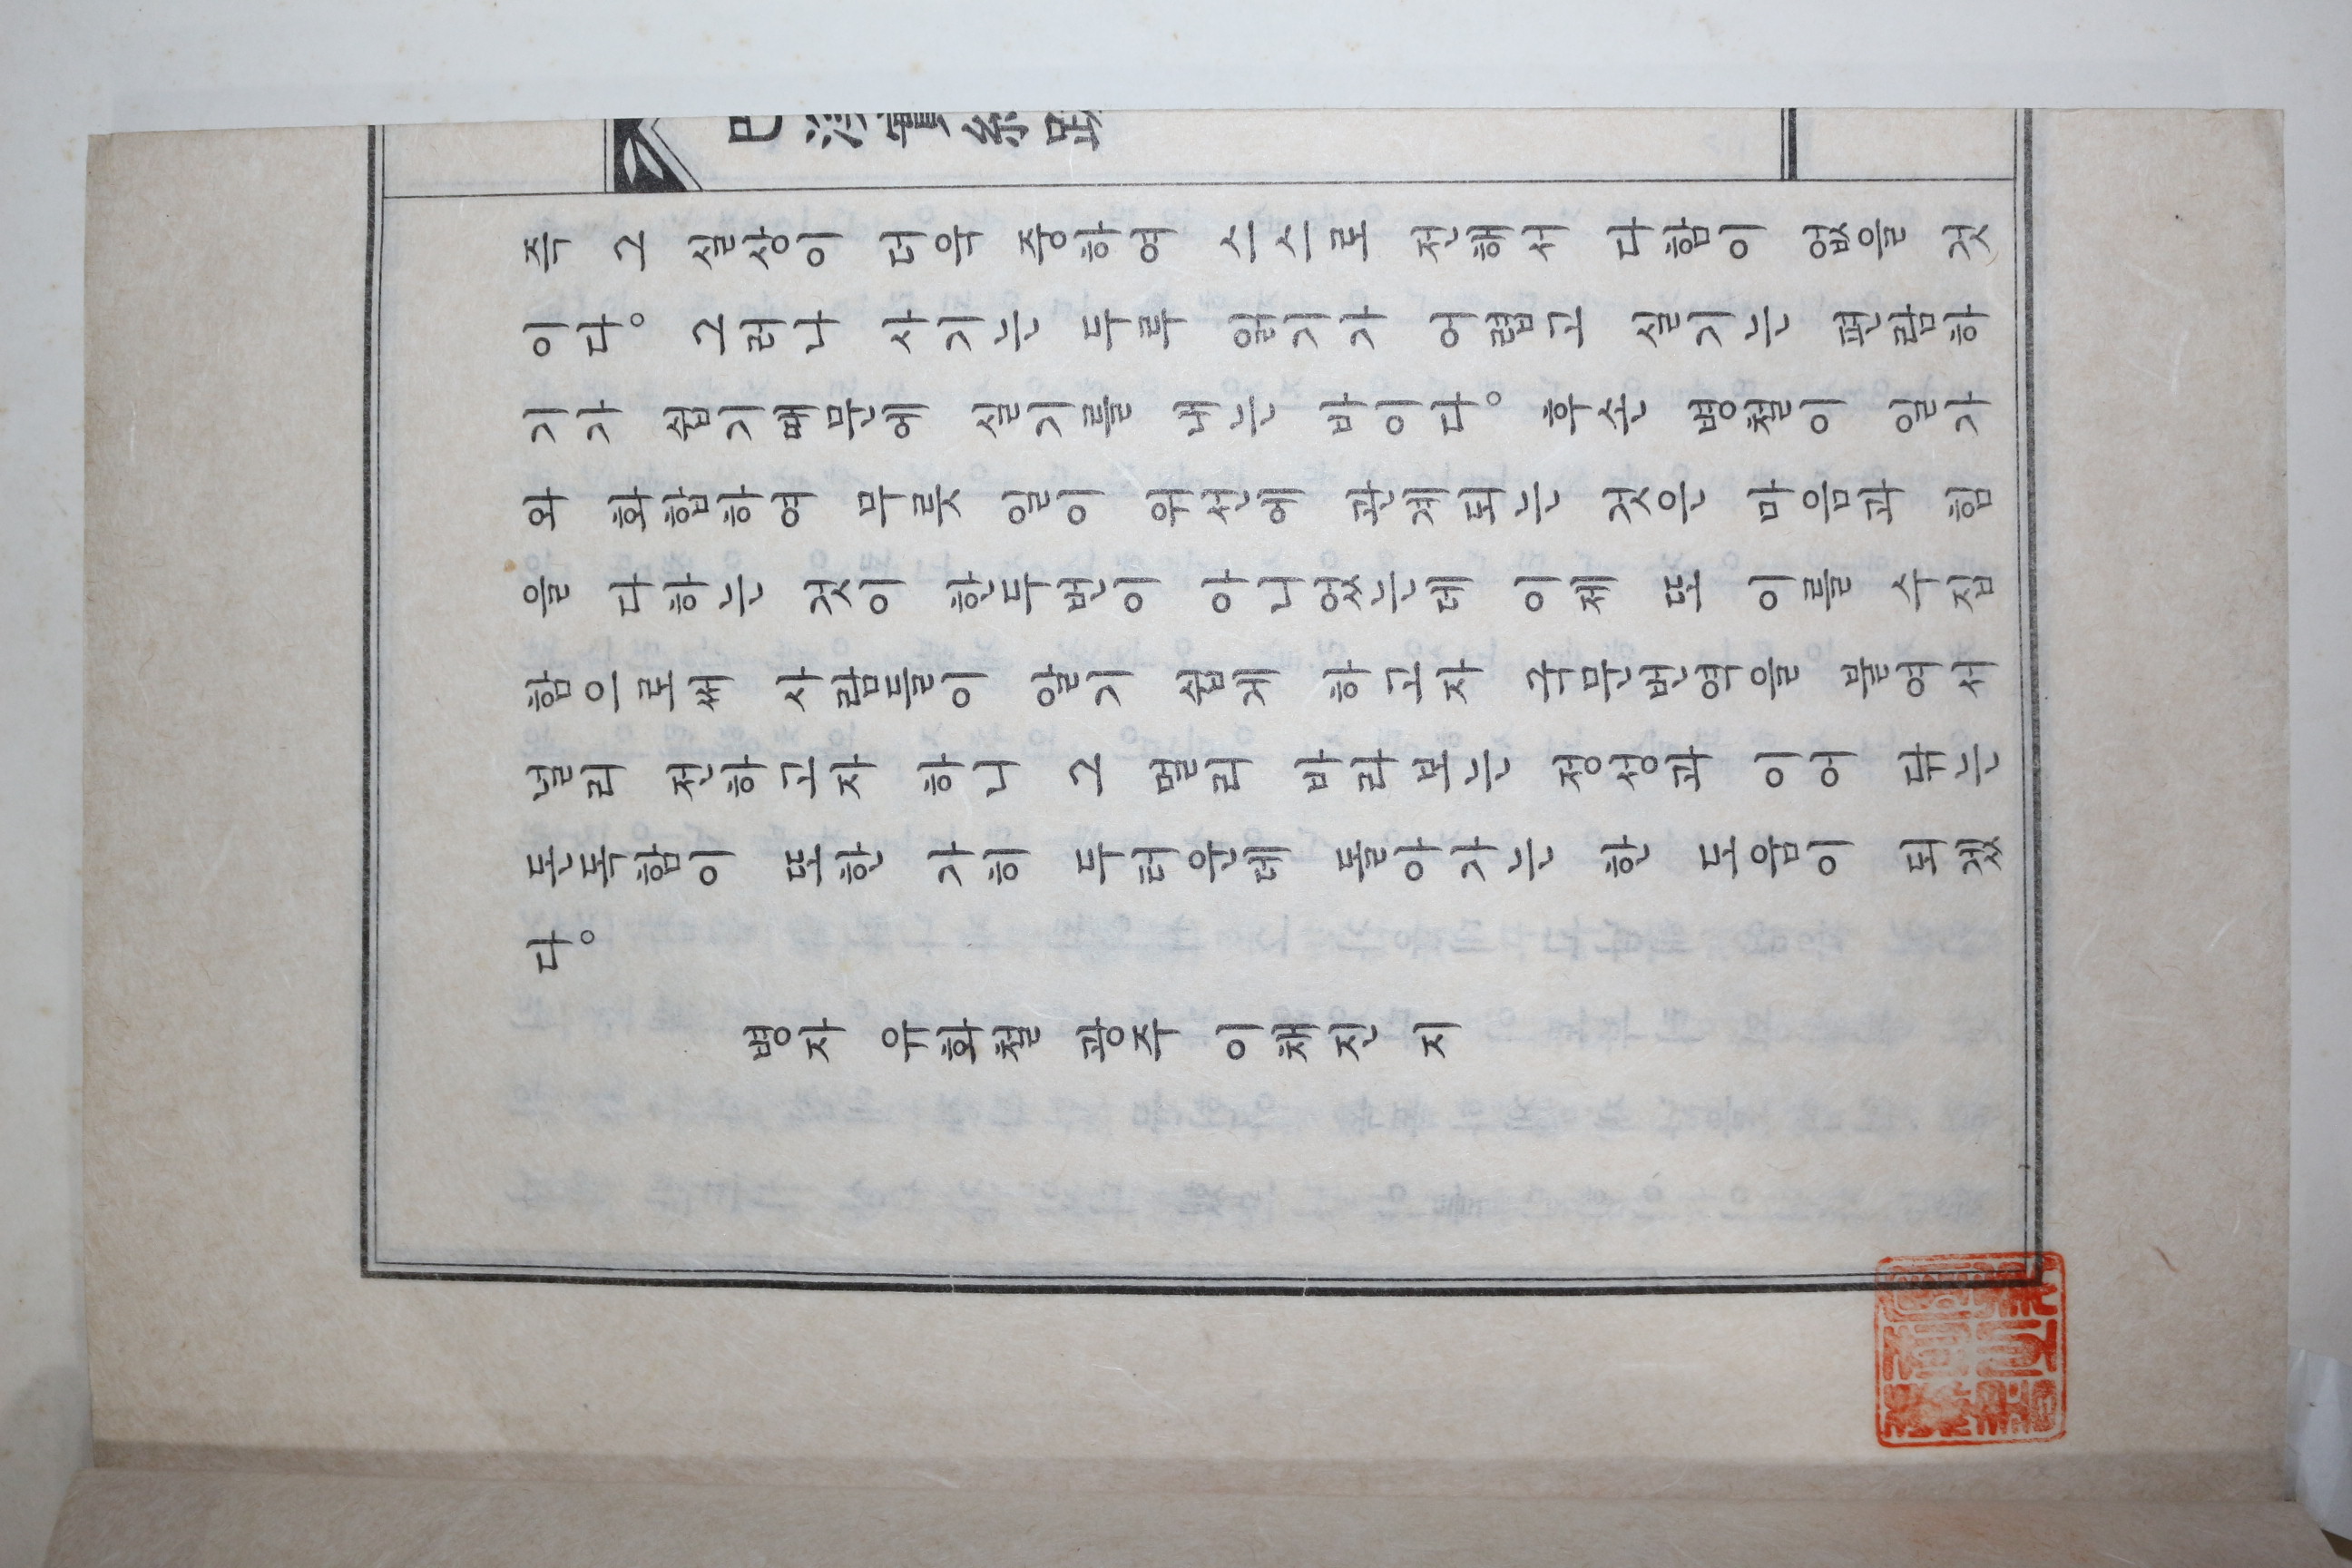 즉 그 실상이 더욱 중하여 스스로 전해서 다함이 없을 것
이다。 그러나 사기는 두루 읽기가 어렵고 실기는 편람하
기가 쉽기때문에 실기를 내는 바이다。 후손 명철이 일가
와 화합하여 무릇 일이 위선에 관계되는 것은 마음과 힘
을 다하는 것이 한두번이 아니었는데 이제 또 이를 수집
함으로써 사람들이 알기 쉽게 하고자 국문번역을 붙여서
널리 전하고자 하니 그 멀리 바라보는 정성과 이어 닦는
돈독함이 또한 가히 두터운데 돌아가는 한 도움이 되겠
다。
명자 유화철 광주 이채진 지